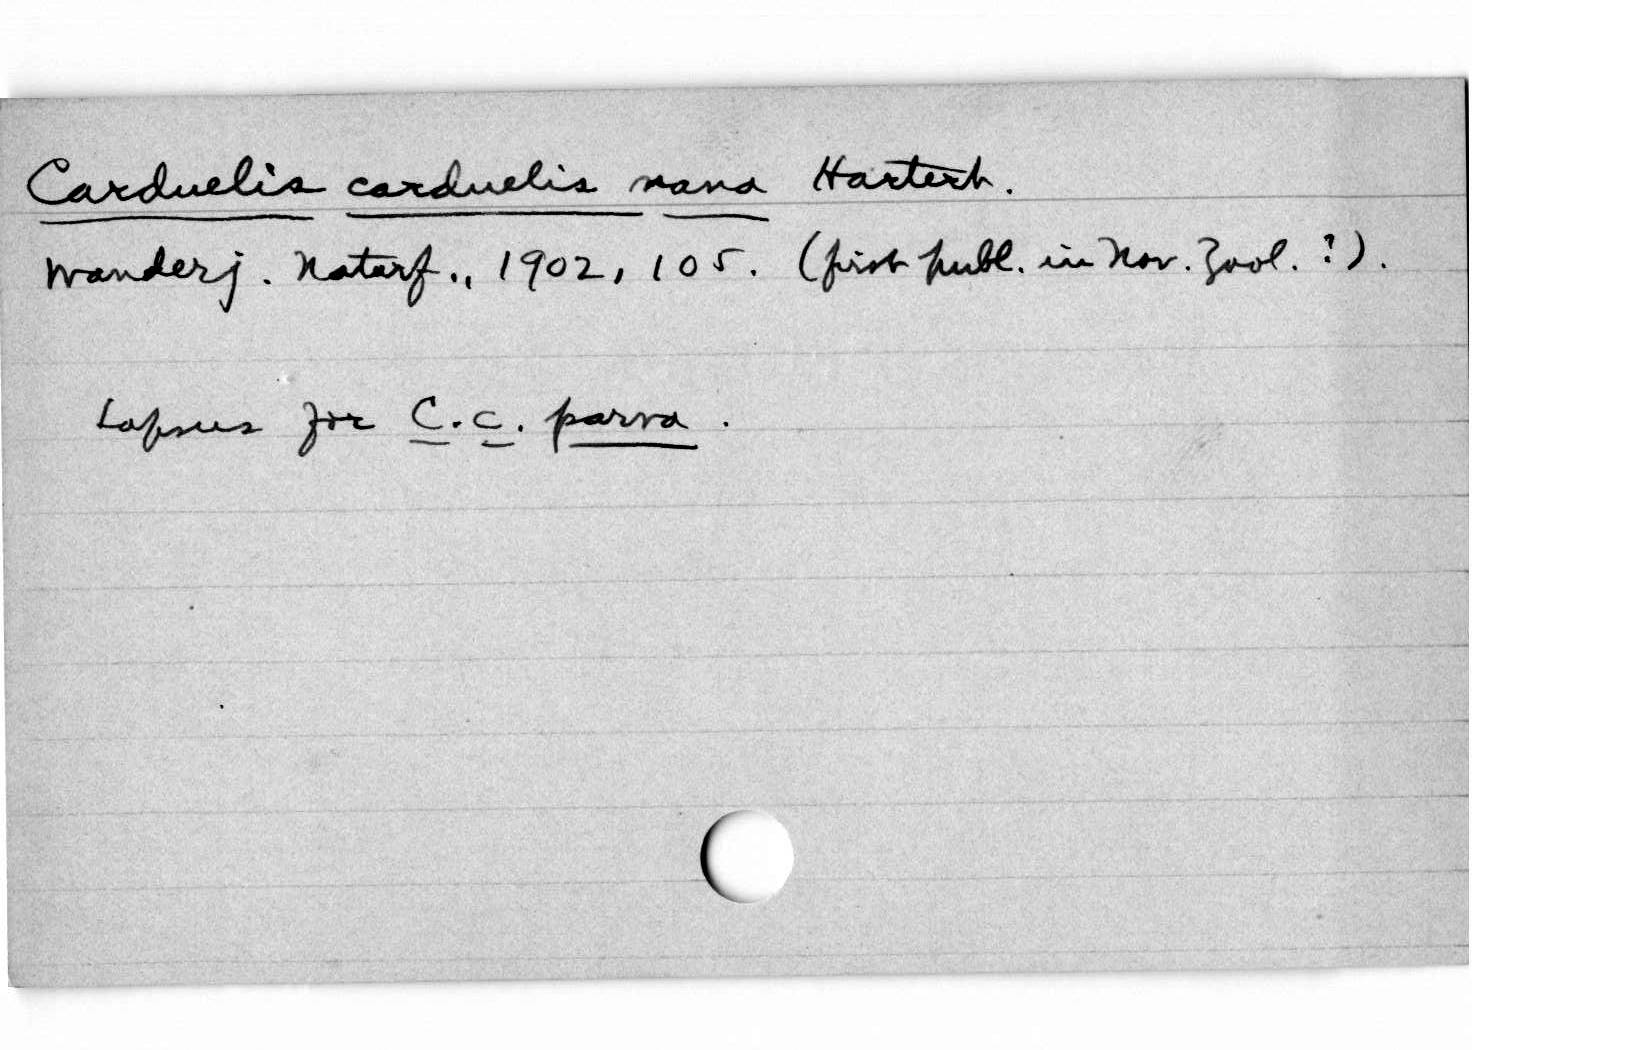 Carduelis carduelis nana Hartert.
Wanderj. Naturf., 1902, 105. (first publ. in Nov. Zool. ?).
Lapsus for C. c. parva.